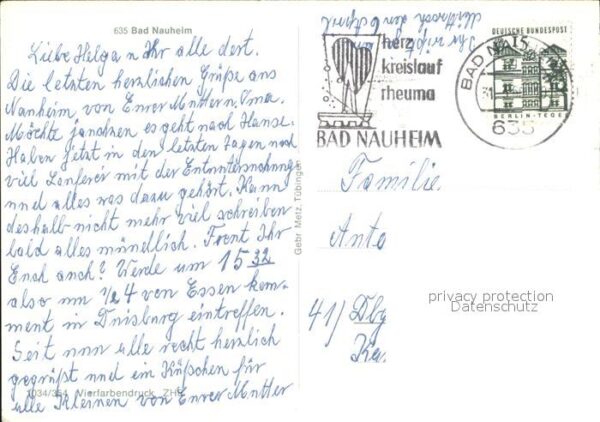 635 Bad Nauheim
Liebe Helga u Ihr alle dort.
Die letzten herzlichen Grüße aus
Nauheim, von Eurer Mutter u. Oma.
Möchte jauchzen es geht nach Hause.
Haben jetzt in den letzten Tagen noch
viel Lauferei mit der Entuntersuchung
und alles was dazu gehört. Kann
deshalb nicht mehr viel schreiben
bald alles mündlich. Freut Ihr
Euch auch? Werde um 15 32
also um 1/2 4 von Essen kom-
ment in Duisburg eintreffen.
Seit nun alle recht herzlich
gegrüßt und ein Küßchen für
alle Kleinen von Eurer Mutter
1034/364 Vierfarbendruck
Gebr. Metz, Tübingen
herz
kreislauf
rheuma
BAD NAUHEIM
BAD NAUHEIM
635
DEUTSCHE BUNDESPOST
15
BERLIN-TEGEL
Familie
Anto
41) Dbg
Ka.
privacy protection
Datenschutz